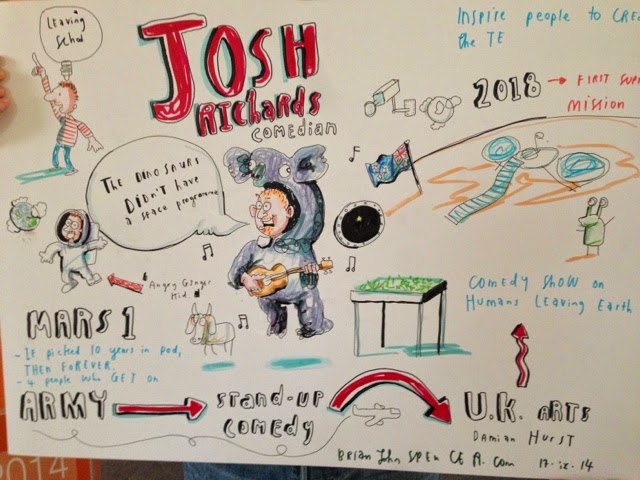 Leaving
Schol
JOSH
Richards
Comedian
Inspire people to CRE
the TE
2018 → FIRST SUPP
Mission
The DINOSAURS
DIDN'T have
a space programme
Angry Ginger
Kid.
Comedy Show on
Humans Leaving Earth
MARS 1
- IF picked 10 years in pod,
THEN FOREVER.
- 4 people who GET on
ARMY → Stand-up
Comedy
U.K. ARTS
Damian Hurst
Brian John SPENCER.com 17.ix.14
2014